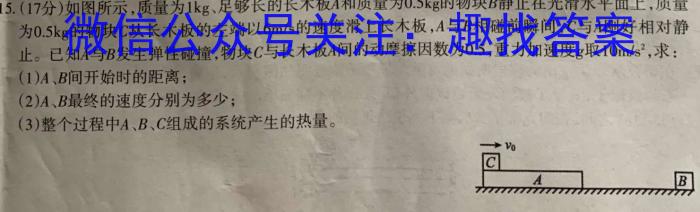 15.(17分)如图所示,质量为1kg、足够长的长木板A和质量为0.5kg的物块B静止在光滑水平面上,质量
为0.5kg的物块C从长木板的左端以 的速度滑上长木板,A 碰 瞬间 C与A 好相对静
止。已知A与B发生弹性碰撞,物块C与长木板A间的动摩擦因数为0.5,重力加速度g取10m/s²,求:
微信公众号关注：趣找答案
(1)A、B间开始时的距离;
(2)A、B最终的速度分别为多少;
(3)整个过程中A、B、C组成的系统产生的热量。
v₀
C
A
B